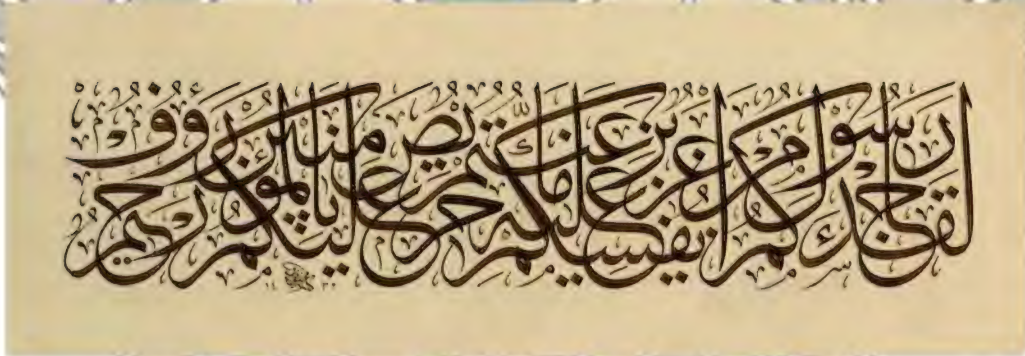 لَقَدْ جَاءَكُمْ رَسُولٌ مِنْ أَنْفُسِكُمْ عَزِيزٌ عَلَيْهِ مَا عَنِتُّمْ حَرِيصٌ عَلَيْكُمْ بِالْمُؤْمِنِينَ رَؤُوفٌ رَحِيمٌ